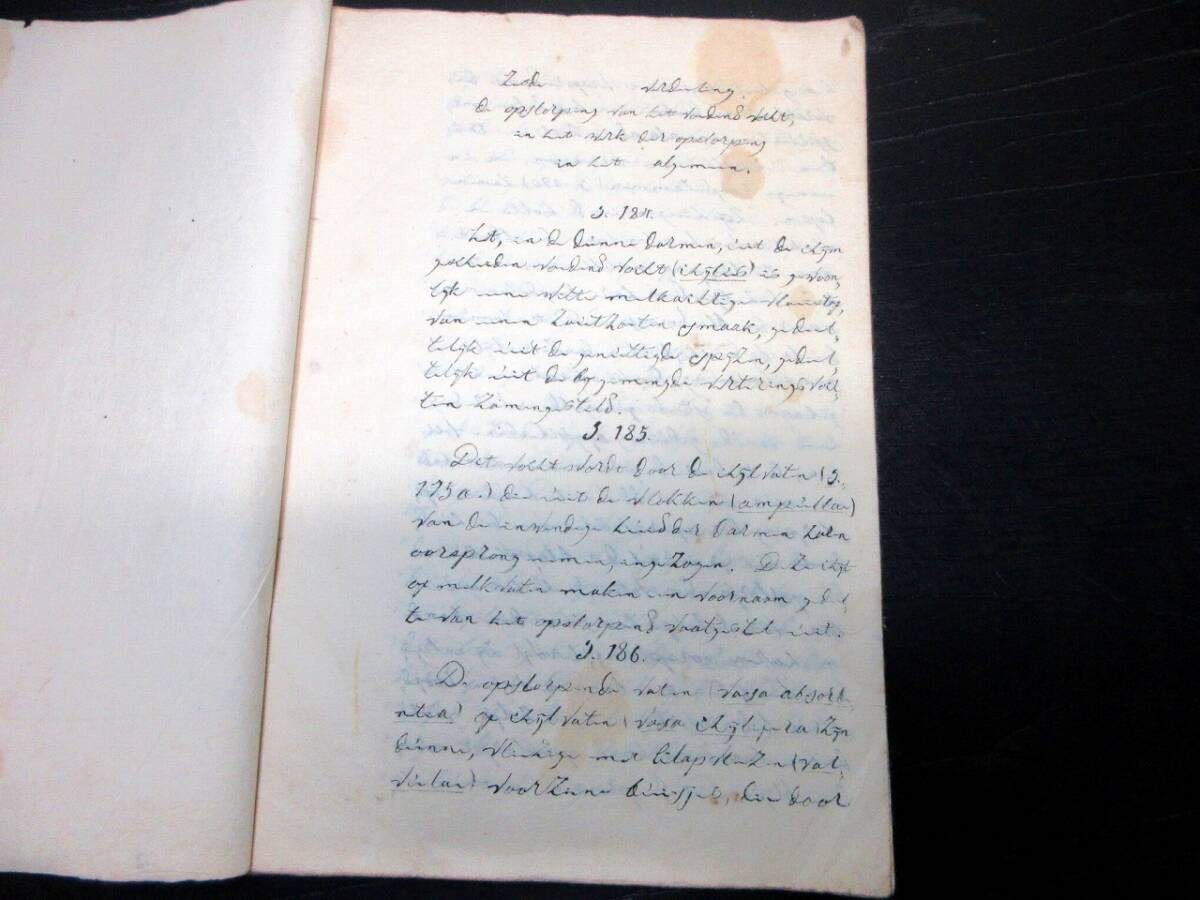 Zesde Verdeeling.
De opslorping van het voedend vocht,
en het werk der opslorping
in het algemeen.
§. 184.
Het, in de dünne darmen, üit de chÿm
gescheiden voedend vocht (chÿlüs) is gewoon„
lÿk eene witte melkachtige vloeistof,
van eenen zoützoeten smaak, gedeel„
telÿk üit de genüttigde spÿzen, gedeel„
telÿk üit de bÿgemengde verterings voch„
ten zamengesteld.
§. 185.
Det vocht wordt door de chÿlvaten (§.
175 a.) die üit de vlokken (ampüllae)
van de inwendige hüid der darmen haren
oorsprong nemen, ingezogen. Deze chÿl
of melkvaten maken een voornaam gedeel„
te van het opslorpend vaatgestel üit.
§. 186.
De opslorpende vaten (vasa absorbe„
ntia) of chÿlvaten (vasa chÿlifera) zÿn
dünne, vliezige met klapvliezen (val„
vülae) voorziene büisjes, die door